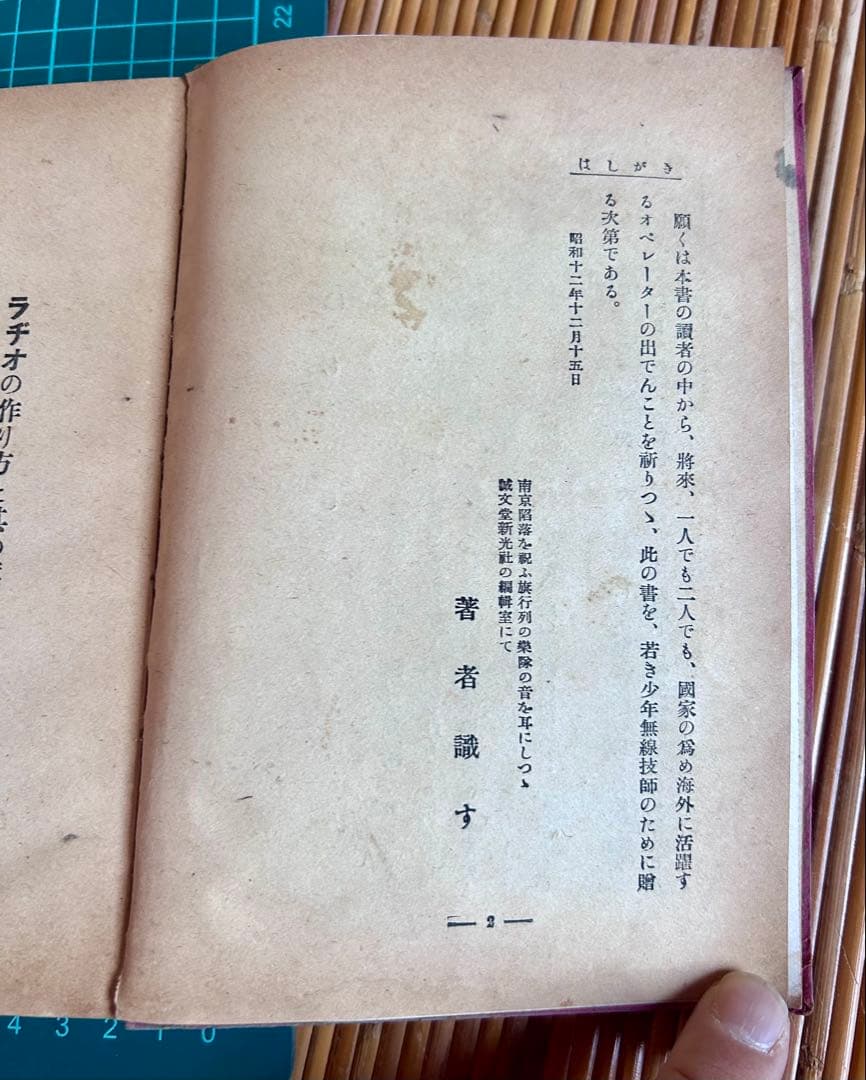 はしがき
願くは本書の讀者の中から、將來、一人でも二人でも、國家の爲め海外に活躍す
るオペレーターの出でんことを祈りつゝ、此の書を、若き少年無線技師のために贈
る次第である。
昭和十二年十二月十五日
南京陷落を祝ふ旗行列の樂隊の音を耳にしつゝ
誠文堂新光社の編輯室にて
著者識す
— 2 —
ラヂオの作り方と
22
4 3 2 1 0